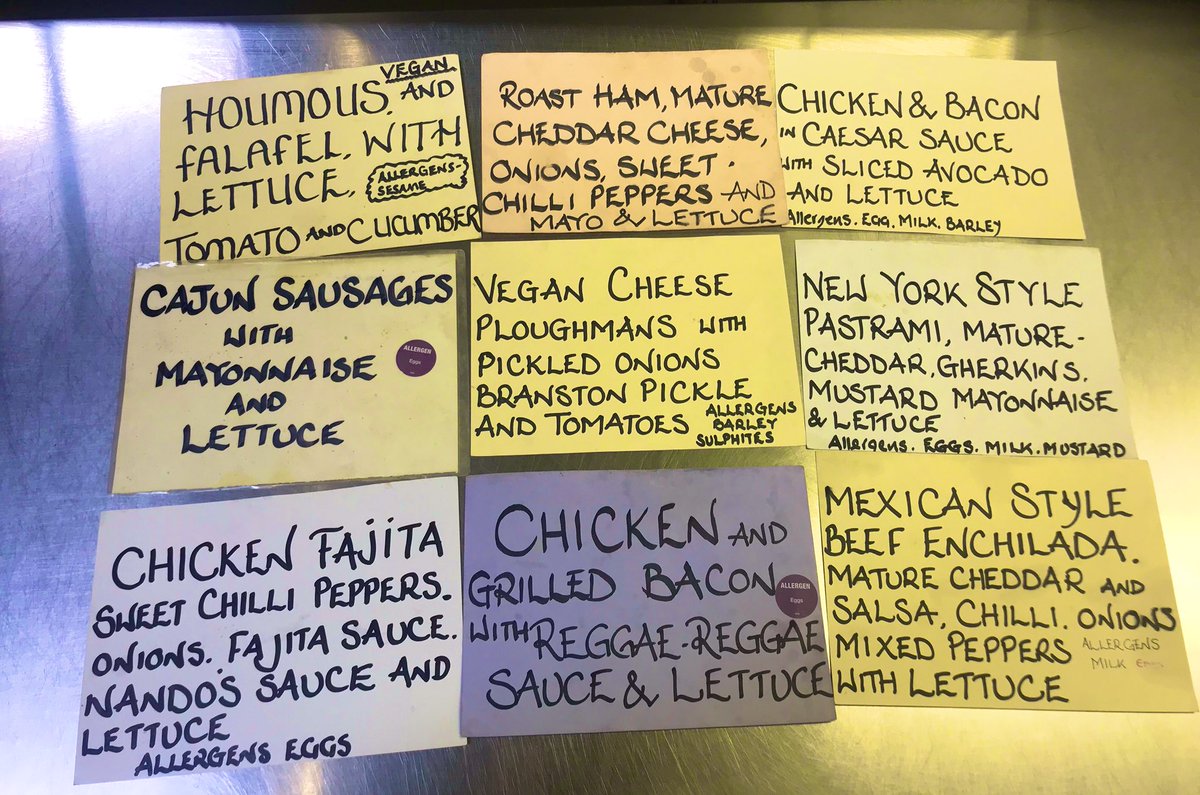 VEGAN
HOUMOUS, AND
FALAFEL. WITH
LETTUCE,
ALLERGENS-
SESAME
TOMATO AND CUCUMBER
ROAST HAM, MATURE
CHEDDAR CHEESE,
ONIONS, SWEET.
CHILLI PEPPERS AND
MAYO & LETTUCE
CHICKEN & BACON
IN CAESAR SAUCE
WITH SLICED AVOCADO
AND LETTUCE
Allergens. EGG. MILK. BARLEY
CAJUN SAUSAGES
WITH
MAYONNAISE
AND
LETTUCE
ALLERGEN
Eggs
VEGAN CHEESE
PLOUGHMANS WITH
PICKLED ONIONS
BRANSTON PICKLE
AND TOMATOES
ALLERGENS
BARLEY
SULPHITES
NEW YORK STYLE
PASTRAMI, MATURE-
CHEDDAR, GHERKINS,
MUSTARD MAYONNAISE
& LETTUCE
Allergens. EGGS. MILK. MUSTARD
CHICKEN FAJITA
SWEET CHILLI PEPPERS.
ONIONS. FAJITA SAUCE.
NANDO'S SAUCE AND
LETTUCE
ALLERGENS EGGS
CHICKEN AND
GRILLED BACON
WITH REGGAE-REGGAE
SAUCE & LETTUCE
ALLERGEN
Eggs
MEXICAN STYLE
BEEF ENCHILADA.
MATURE CHEDDAR AND
SALSA, CHILLI. ONIONS
MIXED PEPPERS
WITH LETTUCE
ALLERGENS
MILK Eggs